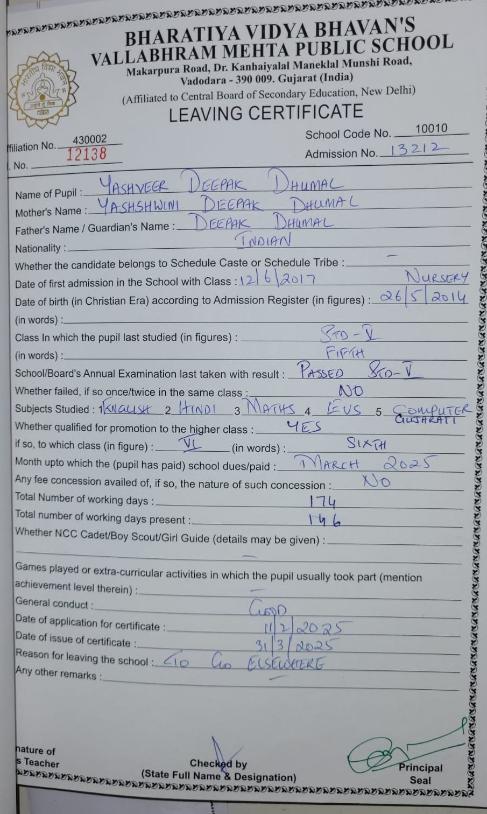 BHARATIYA VIDYA BHAVAN'S
VALLABHRAM MEHTA PUBLIC SCHOOL
Makarpura Road, Dr. Kanhaiyalal Maneklal Munshi Road,
Vadodara - 390 009. Gujarat (India)
(Affiliated to Central Board of Secondary Education, New Delhi)
LEAVING CERTIFICATE
filiation No. 430002 School Code No. 10010
. No. 12138 Admission No. 13212
Name of Pupil : YASHVEER DEEPAK DHUMAL
Mother's Name : YASHSHWINI DEEPAK DHUMAL
Father's Name / Guardian's Name : DEEPAK DHUMAL
Nationality : INDIAN
Whether the candidate belongs to Schedule Caste or Schedule Tribe : –
Date of first admission in the School with Class : 12/6/2017 NURSERY
Date of birth (in Christian Era) according to Admission Register (in figures) : 26/5/2014
(in words) :
Class In which the pupil last studied (in figures) : STD - V
(in words) : FIFTH
School/Board's Annual Examination last taken with result : PASSED STD - V
Whether failed, if so once/twice in the same class : NO
Subjects Studied : 1 ENGLISH 2 HINDI 3 MATHS 4 EVS 5 COMPUTER
GUJARATI
Whether qualified for promotion to the higher class : YES
if so, to which class (in figure) : VI (in words) : SIXTH
Month upto which the (pupil has paid) school dues/paid : MARCH 2025
Any fee concession availed of, if so, the nature of such concession : NO
Total Number of working days : 174
Total number of working days present : 146
Whether NCC Cadet/Boy Scout/Girl Guide (details may be given) :
–
Games played or extra-curricular activities in which the pupil usually took part (mention
achievement level therein) : –
General conduct : GOOD
Date of application for certificate : 11/2/2025
Date of issue of certificate : 31/3/2025
Reason for leaving the school : TO GO ELSEWHERE
Any other remarks : –
nature of
s Teacher
Checked by
(State Full Name & Designation)
Principal
Seal